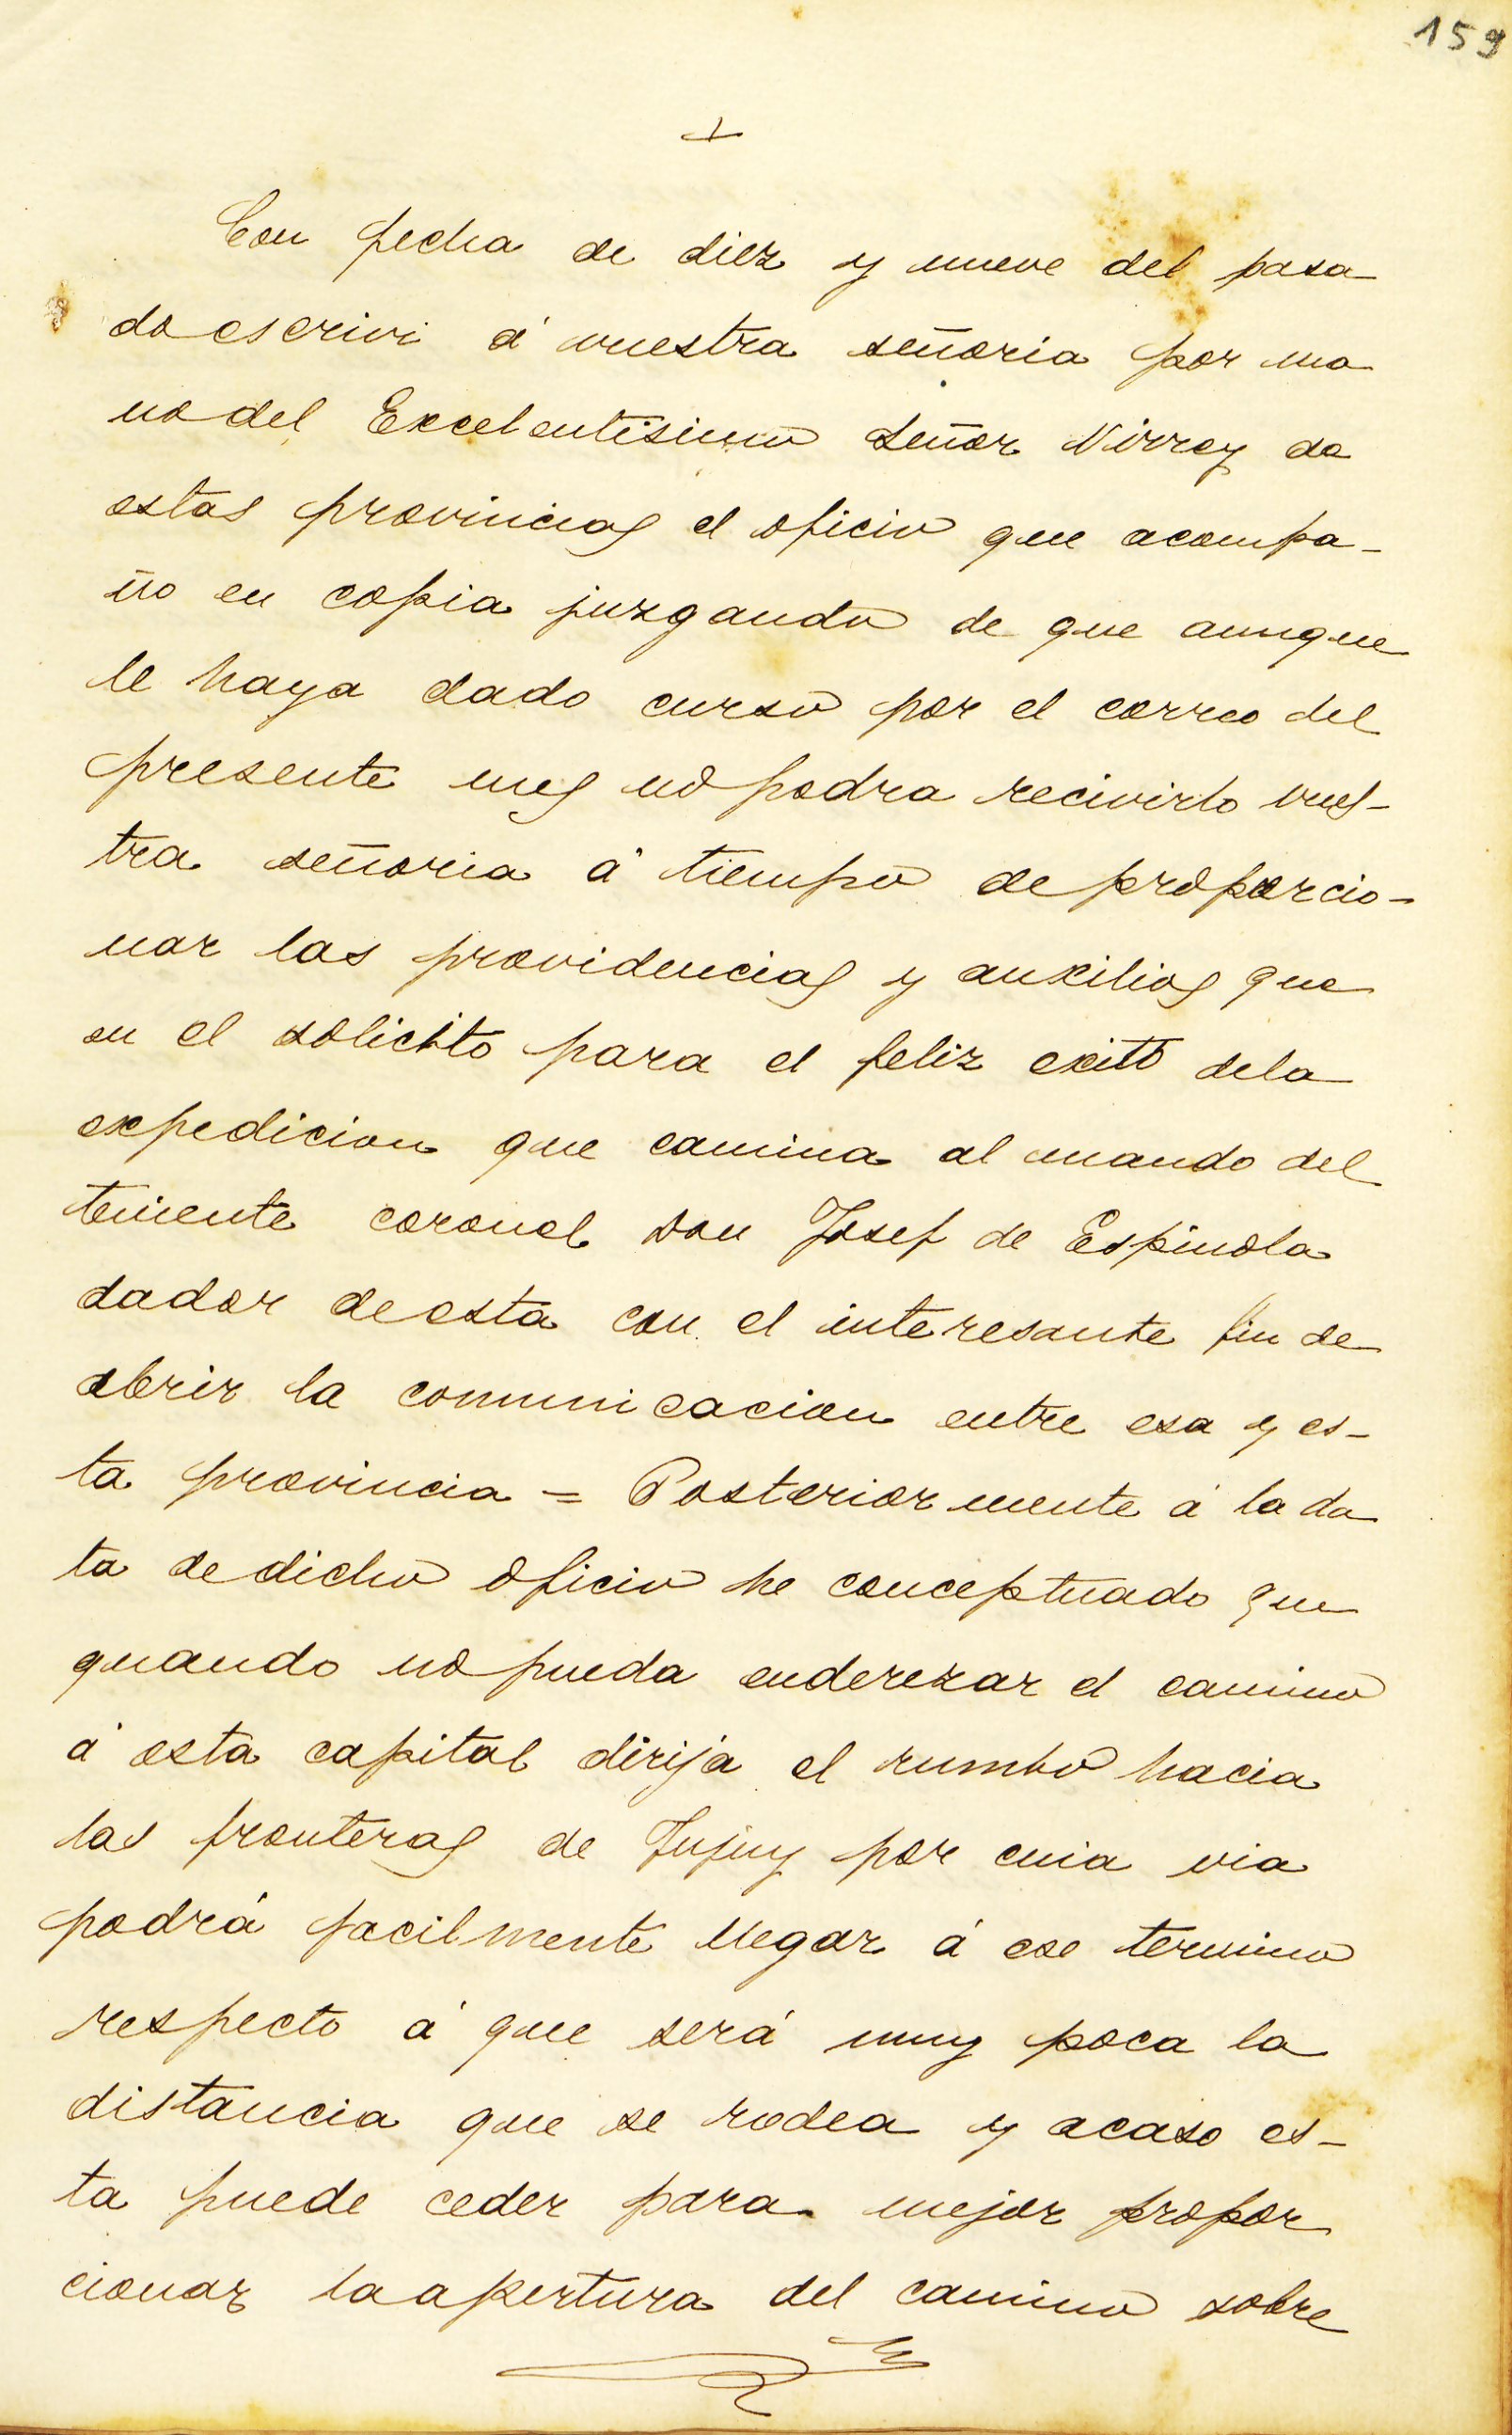 159
+
Con fecha de diez y nueve del pasa-
do escrivi á vuestra señoria por ma-
no del Excelentisimo Señor Virrey de
estas provincias el oficio que acompa-
ño en copia juzgando de que aunque
le haya dado curso por el correo del
presente mes no podra recivirlo vues-
tra señoria á tiempo de proporcio-
nar las providencias y auxilios que
en el solicito para el feliz exito dela
expedicion que camina al mando del
teniente coronel Don Josef de Espinola
dador de esta con el interesante fin de
abrir la comunicacion entre esa y es-
ta provincia = Posteriormente á la da
ta de dicho oficio he conceptuado que
quando no pueda enderezar el camino
á esta capital dirija el rumbo hacia
las fronteras de Jujuy por cuia via
podrá facilmente llegar á ese termino
respecto á que será muy poca la
distancia que se rodea y acaso es-
ta puede ceder para mejor propor
cionar la apertura del camino sobre